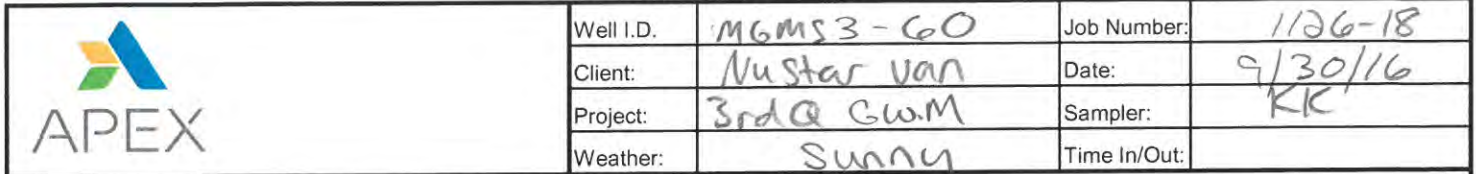 Well I.D. MGMS3-60 Job Number: 1126-18
Client: NuStar Van Date: 9/30/16
Project: 3rdQ GW.M Sampler: KK
APEX
Weather: Sunny Time In/Out: